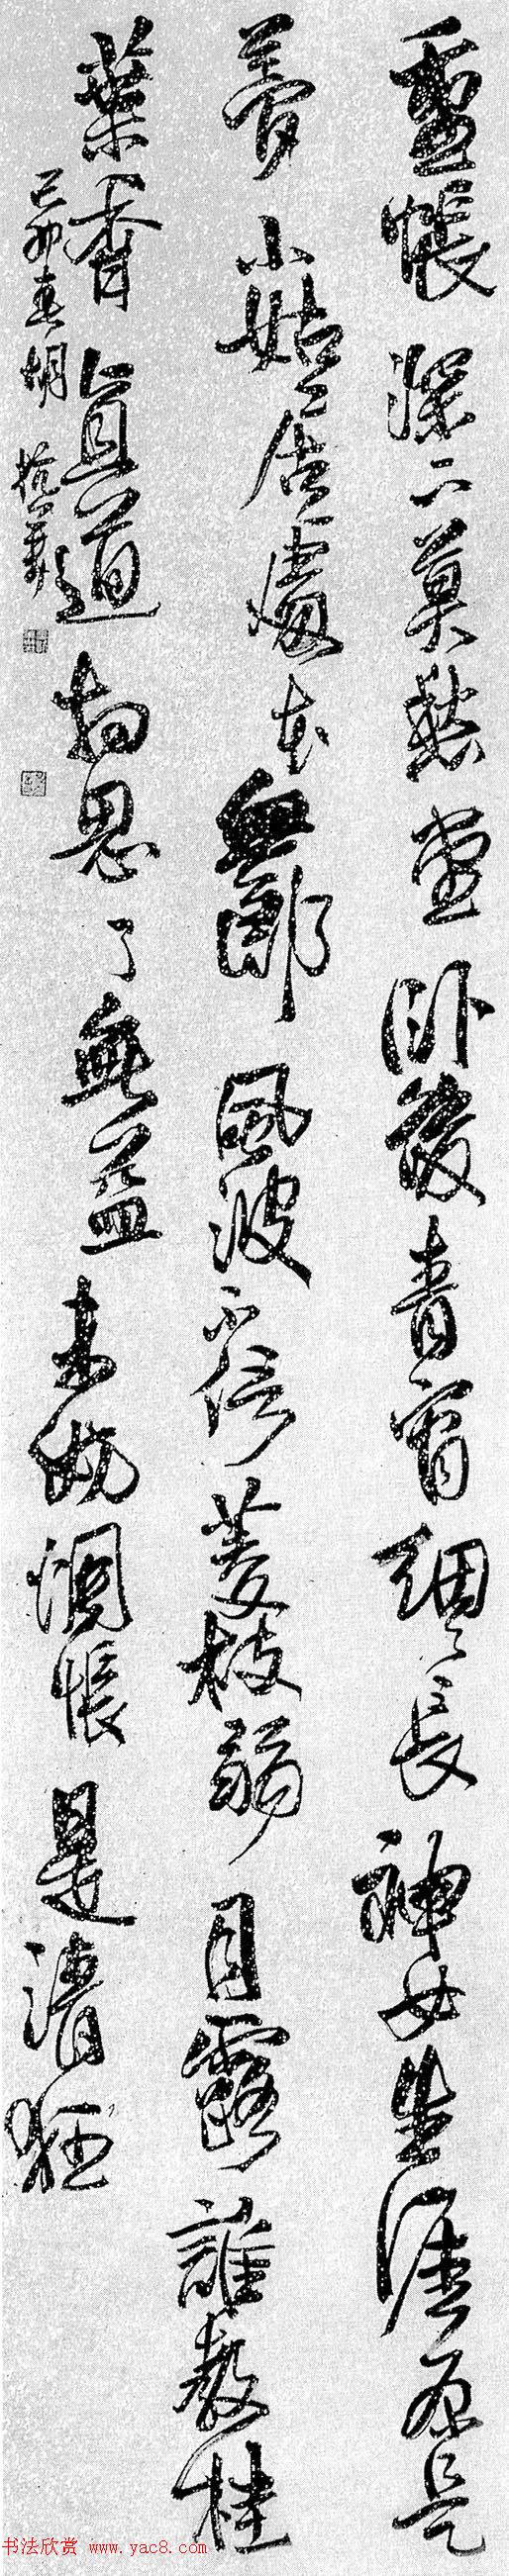 重帳深下莫愁堂臥後青宵細々長神女生涯原是
夢小姑居處本無郎風波不信菱枝弱月露誰教桂
葉香直道相思了無益未妨惆悵是清狂
己卯春胡抗美
书法欣赏 www.yac8.com